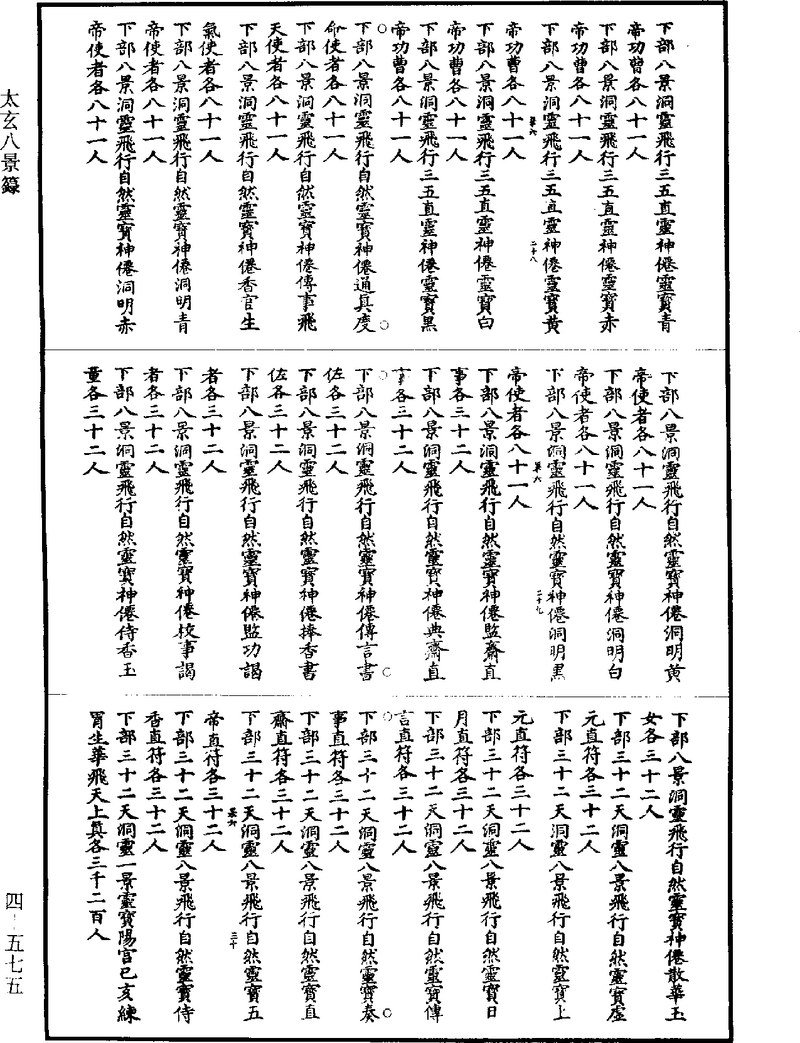 下部八景洞靈飛行三五直靈神僊靈寶青
帝功曹各八十一人
下部八景洞靈飛行三五直靈神僊靈寶赤
帝功曹各八十一人
下部八景洞靈飛行三五直靈神僊靈寶黃
帝功曹各八十一人
下部八景洞靈飛行三五直靈神僊靈寶白
帝功曹各八十一人
下部八景洞靈飛行三五直靈神僊靈寶黑
帝功曹各八十一人
下部八景洞靈飛行自然靈寶神僊通真度
命使者各八十一人
下部八景洞靈飛行自然靈寶神僊傳事飛
天使者各八十一人
下部八景洞靈飛行自然靈寶神僊香官生
氣使者各八十一人
下部八景洞靈飛行自然靈寶神僊洞明青
帝使者各八十一人
下部八景洞靈飛行自然靈寶神僊洞明赤
帝使者各八十一人
下部八景洞靈飛行自然靈寶神僊洞明黃
帝使者各八十一人
下部八景洞靈飛行自然靈寶神僊洞明白
帝使者各八十一人
下部八景洞靈飛行自然靈寶神僊洞明黑
帝使者各八十一人
下部八景洞靈飛行自然靈寶神僊監齋直
事各三十二人
下部八景洞靈飛行自然靈寶神僊典齋直
事各三十二人
下部八景洞靈飛行自然靈寶神僊傳言書
佐各三十二人
下部八景洞靈飛行自然靈寶神僊捧香書
佐各三十二人
下部八景洞靈飛行自然靈寶神僊監功謁
者各三十二人
下部八景洞靈飛行自然靈寶神僊校事謁
者各三十二人
下部八景洞靈飛行自然靈寶神僊侍香玉
童各三十二人
下部八景洞靈飛行自然靈寶神僊散華玉
女各三十二人
下部三十二天洞靈八景飛行自然靈寶虛
元直符各三十二人
下部三十二天洞靈八景飛行自然靈寶上
元直符各三十二人
下部三十二天洞靈八景飛行自然靈寶日
月直符各三十二人
下部三十二天洞靈八景飛行自然靈寶傳
言直符各三十二人
下部三十二天洞靈八景飛行自然靈寶奏
事直符各三十二人
下部三十二天洞靈八景飛行自然靈寶直
齋直符各三十二人
下部三十二天洞靈八景飛行自然靈寶五
帝直符各三十二人
下部三十二天洞靈八景飛行自然靈寶侍
香直符各三十二人
下部三十二天洞靈一景靈寶陽宮已亥練
胃生華飛天上真各三千二百人
二十八
二十九
三十
太玄八景籙
四-五七五